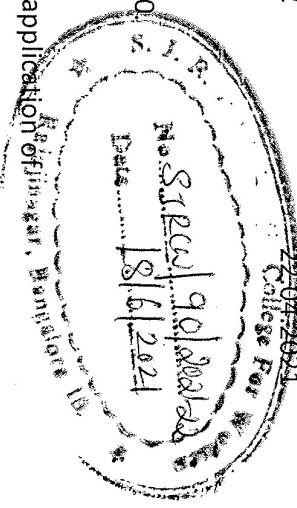 22-04-2021
S. J. R. College For Women
No SJRCW/90/2021-22
Date 18/6/2021
Rajajinagar, Bangalore 10.
application of